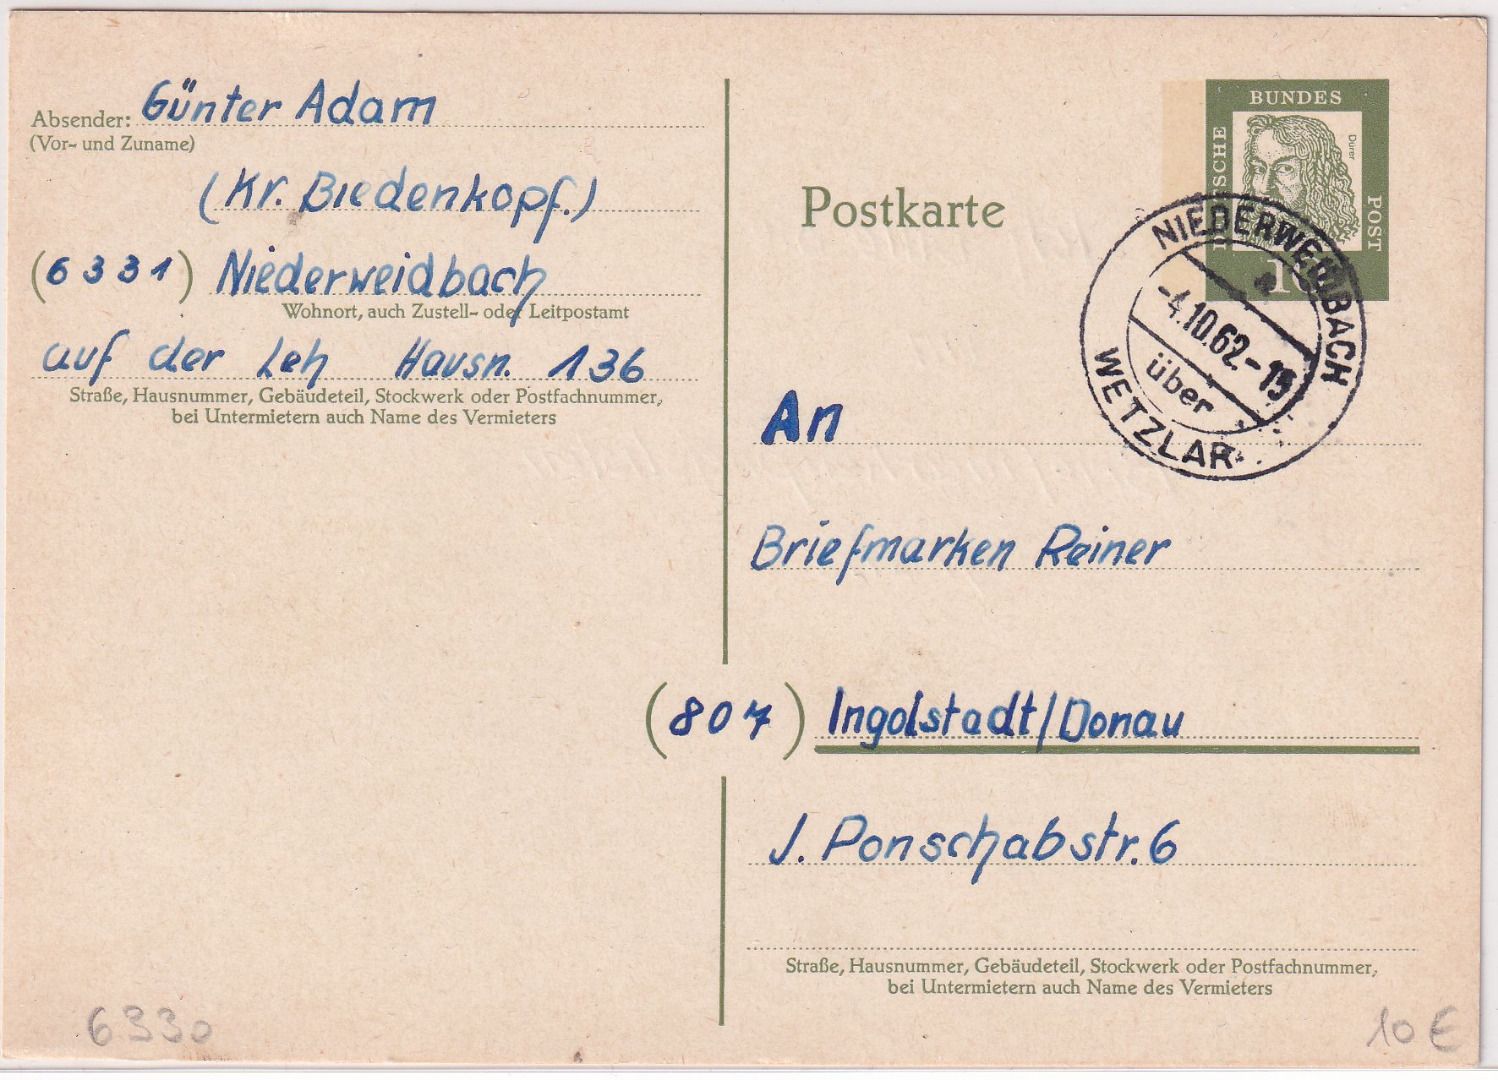 Absender: Günter Adam
(Vor- und Zuname)
(Kr. Biedenkopf.)
(6331) Niederweidbach
Wohnort, auch Zustell- oder Leitpostamt
auf der Leh Hausn. 136
Straße, Hausnummer, Gebäudeteil, Stockwerk oder Postfachnummer,
bei Untermietern auch Name des Vermieters
6330
BUNDES
POST
Dürer
10
Postkarte
NIEDERWEIDBACH
-4.10.62.-15
über
WETZLAR
An
Briefmarken Reiner
(807) Ingolstadt/Donau
J. Ponschabstr. 6
Straße, Hausnummer, Gebäudeteil, Stockwerk oder Postfachnummer,
bei Untermietern auch Name des Vermieters
10 €